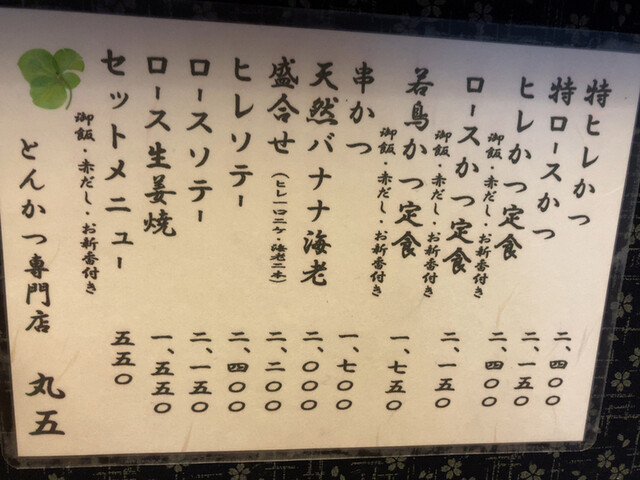 特ヒレかつ 二、四〇〇
特ロースかつ 二、一五〇
ヒレかつ定食 二、四〇〇
御飯・赤だし・お新香付き
ロースかつ定食 二、一五〇
御飯・赤だし・お新香付き
若鳥かつ定食 一、七五〇
御飯・赤だし・お新香付き
串かつ 一、七〇〇
天然バナナ海老 二、〇〇〇
盛合せ（ヒレ一口二ケ・海老二本） 二、二〇〇
ヒレソテー 二、四〇〇
ロースソテー 二、一五〇
ロース生姜焼 一、五五〇
セットメニュー 五五〇
御飯・赤だし・お新香付き
とんかつ専門店 丸五